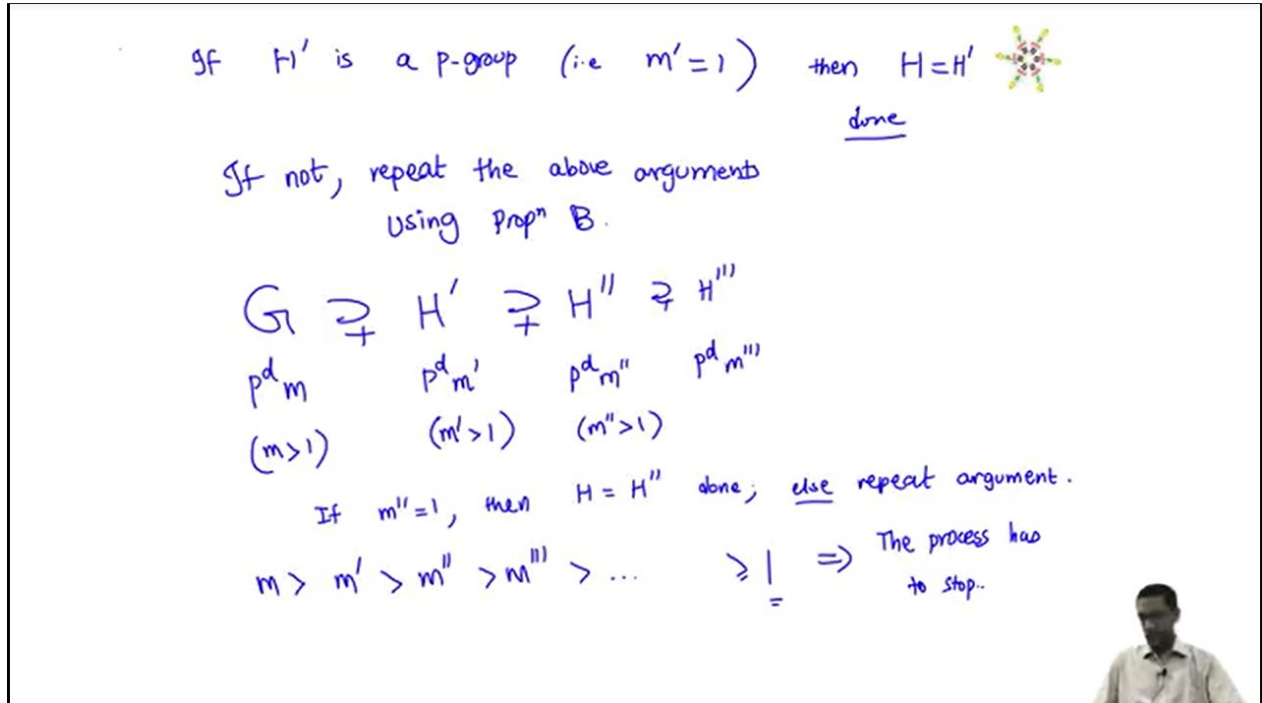 If H' is a p-group (i.e m' = 1) then H = H'
done
If not, repeat the above arguments
using Propⁿ B.
G ⊋ H' ⊋ H'' ⊋ H'''
pᵈm pᵈm' pᵈm'' pᵈm'''
(m>1) (m'>1) (m''>1)
If m''=1, then H = H'' done; else repeat argument.
m > m' > m'' > m''' > ... ≥ 1 ⇒ The process has
to stop..